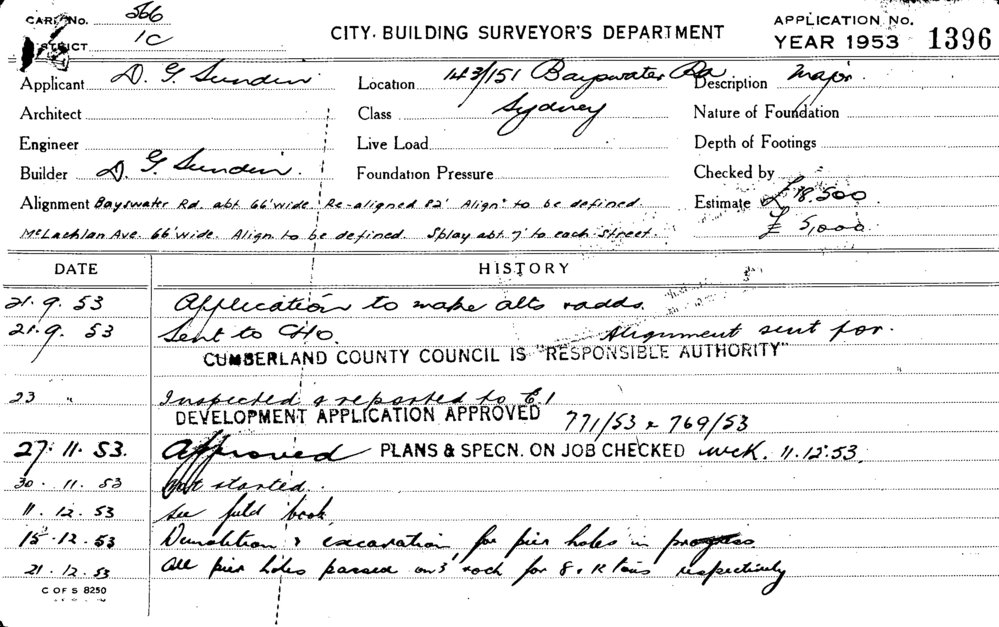 CARD No. 566
DISTRICT 1C
CITY BUILDING SURVEYOR'S DEPARTMENT
APPLICATION No.
YEAR 1953 1396
Applicant D. G. Sundin Location 143/151 Bayswater Rd Description Major
Architect Class Sydney Nature of Foundation
Engineer Live Load Depth of Footings
Builder D. G. Sundin. Foundation Pressure Checked by
Alignment Bayswater Rd. abt 66' wide. Re-aligned 82' Align't to be defined. Estimate £18,500
McLachlan Ave. 66' wide. Align. to be defined. Splay abt. 7' to each street. £ 5,000
DATE HISTORY
21. 9. 53 Application to make alts & adds.
21. 9. 53 Sent to CHO. Alignment sent for.
CUMBERLAND COUNTY COUNCIL IS "RESPONSIBLE AUTHORITY"
23 " Inspected & reported to
DEVELOPMENT APPLICATION APPROVED 771/53 & 769/53
27. 11. 53. Approved PLANS & SPECN. ON JOB CHECKED 11.12.53.
30. 11. 53 Not started.
11. 12. 53 See field book
15. 12. 53 Demolition & excavation for pier holes in progress
21. 12. 53 All pier holes passed on rock for 8 & tons respectively
C OF S 8250